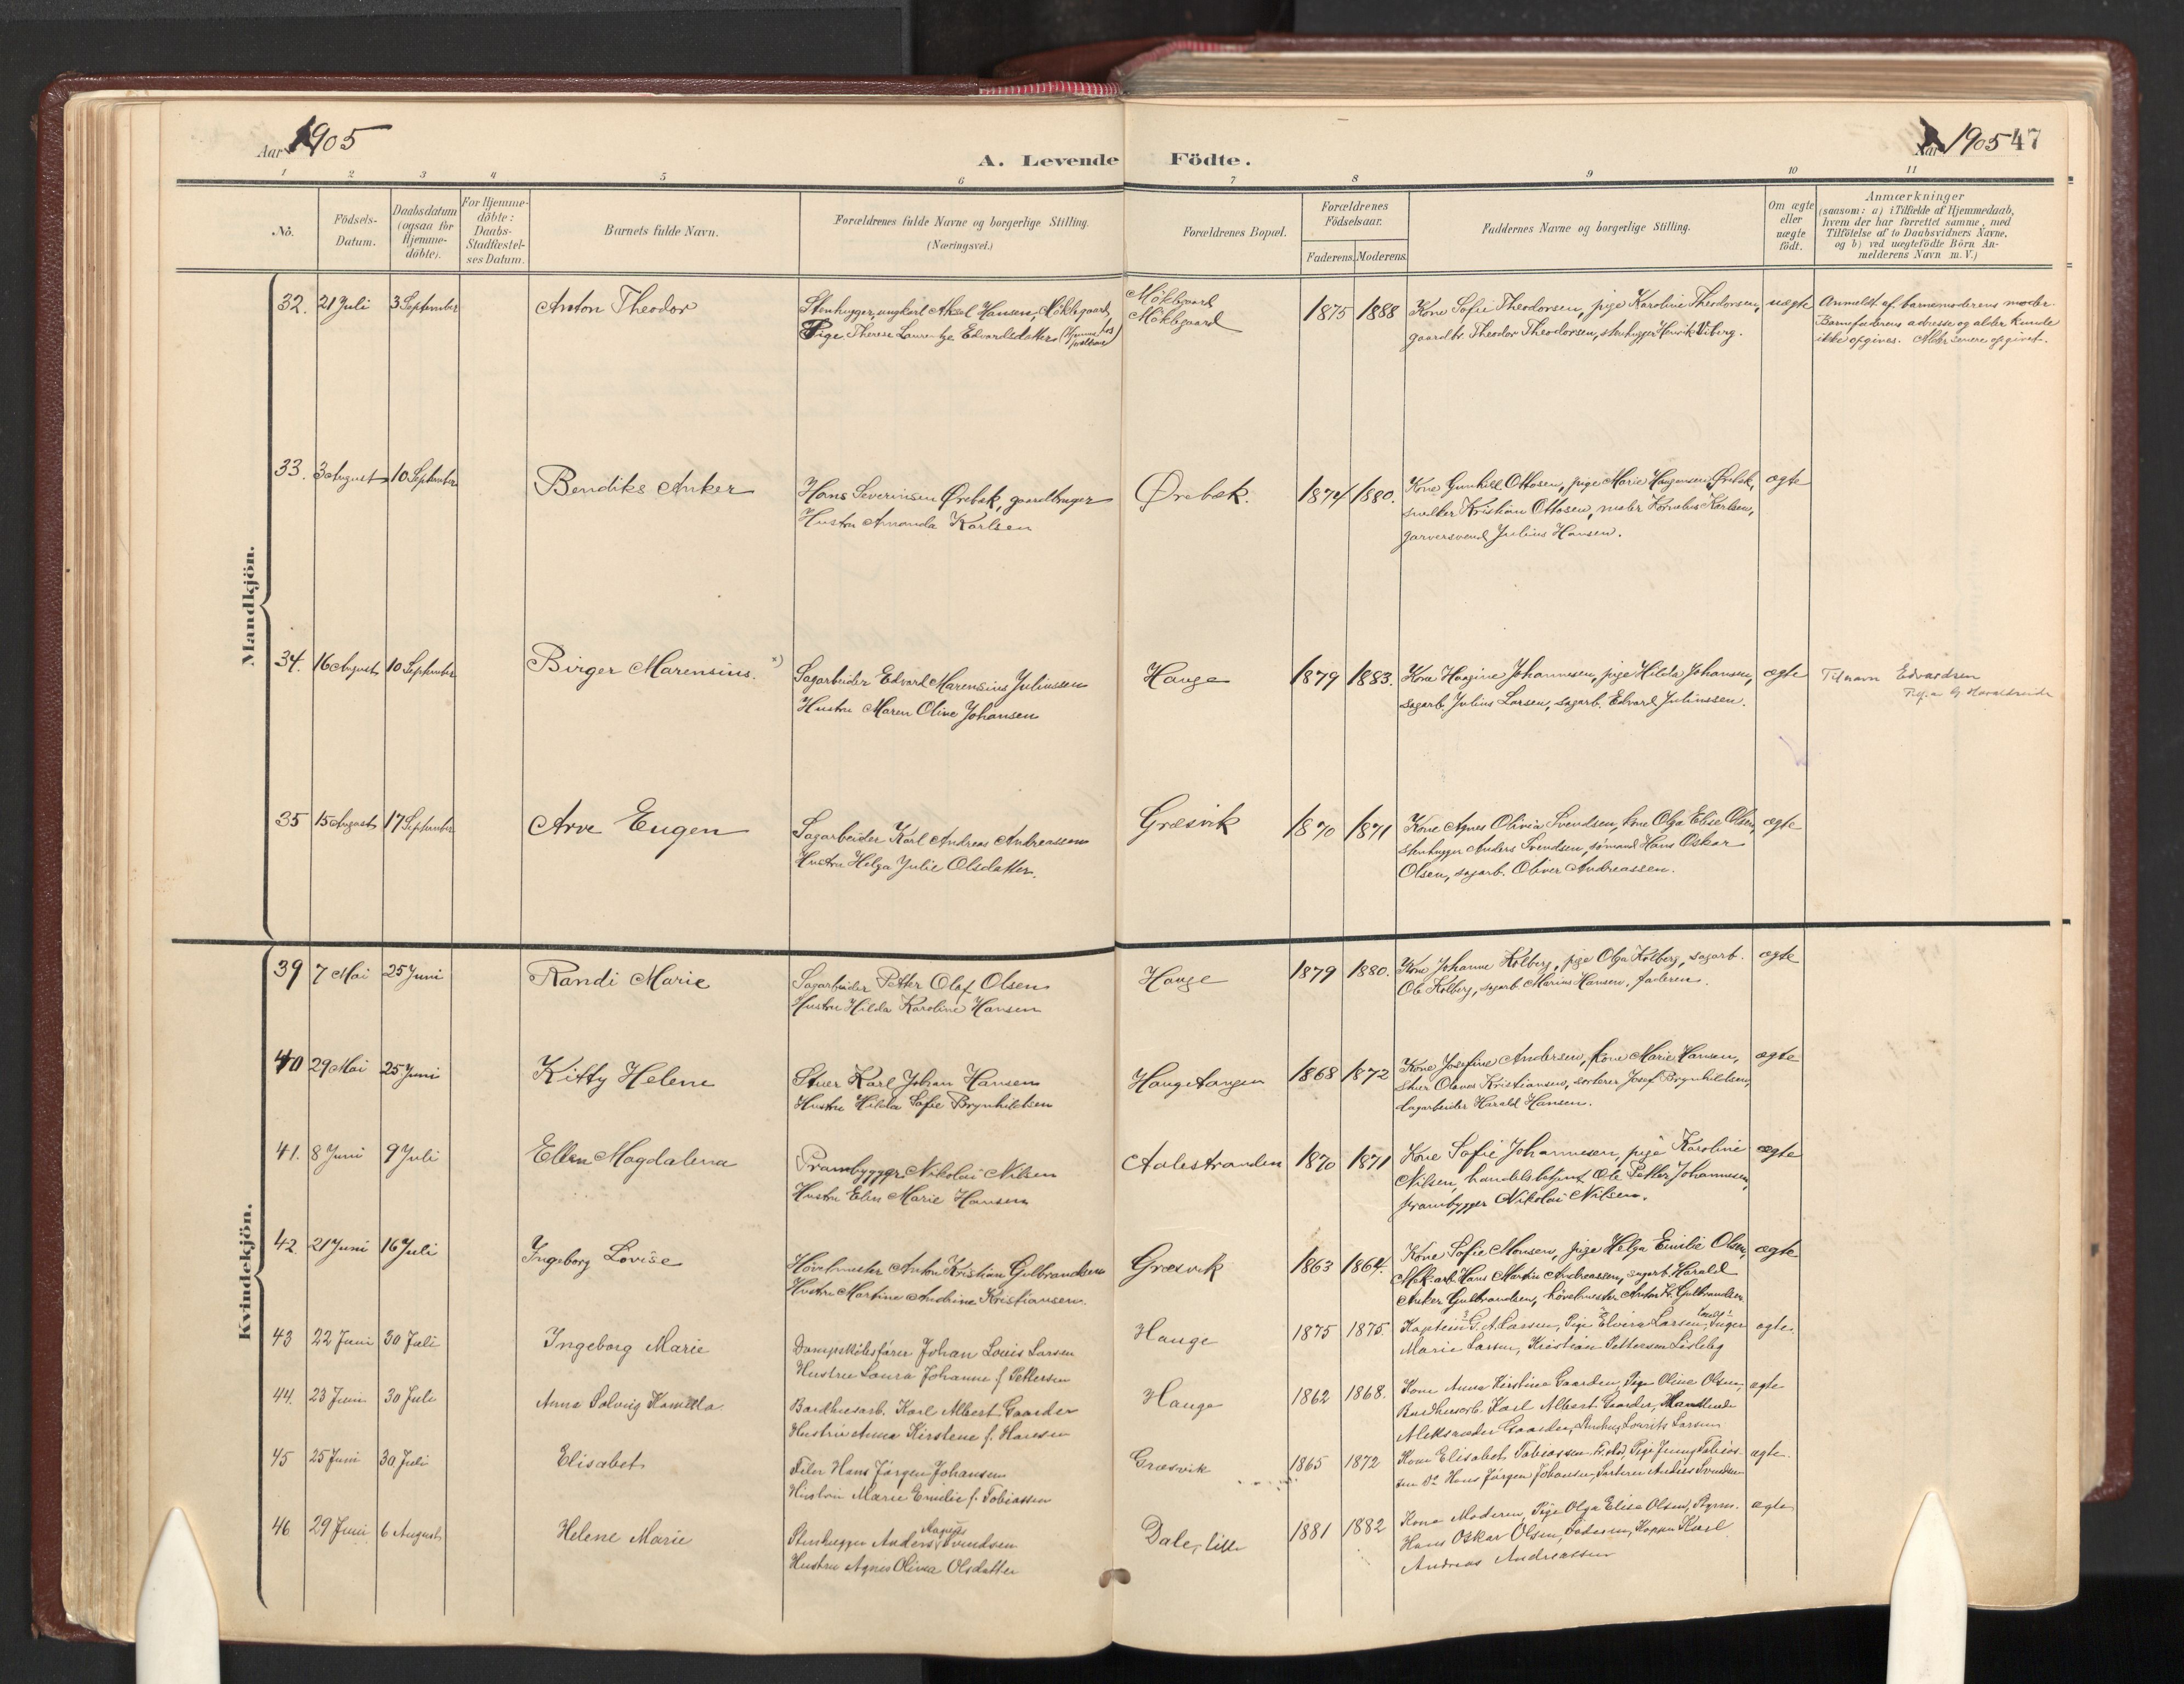 Aar 1905
A. Levende Födte.
Aar 1905 47
1 2 3 4 5 6 7 8 9 10 11
No.
Födsels-
Datum.
Daabsdatum
(ogsaa for
Hjemme-
döbte).
For Hjemme-
döbte:
Daabs-
Stadfæstel-
ses Datum.
Barnets fulde Navn.
Forældrenes fulde Navne og borgerlige Stilling.
(Næringsvei.)
Forældrenes Bopæl.
Forældrenes
Födselsaar.
Faderens. Moderens.
Faddernes Navne og borgerlige Stilling.
Om ægte
eller
uægte
födt.
Anmærkninger
(saasom: a) i Tilfælde af Hjemmedaab,
hvem der har forrettet samme, med
Tilföielse af to Daabsvidners Navne,
og b) ved uægtefödte Börn An-
melderens Navn m. V.)
Mandkjön.
32. 21 Juli 3 September Anton Theodor
Stenhugger, ungkarl Aksel Hansen, Møklegaard
Pige Therese Laurentze Edvardsdatter
Møklegaard
Møklegaard
1875 1888
Kone Sofie Theodorsen, pige Karoline Theodorsen,
gaardbr. Theodor Theodorsen, stenhugger Henrik Viberg.
uægte
Anmeldt af barnemoderens moder.
Barnefaderens adresse og alder kunde
ikke opgives. Alder senere opgivet.
33. 3 August 10 September Bendiks Anker
Hans Severinsen Ørebæk, gaardbruger
Hustru Amanda Karlsen
Ørebæk. 1874 1880.
Kone Gunhild Ottosen, pige Marie Haagensen Ørebæk,
snedker Kristian Ottosen, maler Kornelius Karlsen,
garversvend Julius Hansen.
ægte
34. 16 August 10 September Birger Marensius. x)
Sagarbeider Edvard Marensius Juliussen
Hustru Maren Oline Johansen
Hauge 1879 1883.
Kone Haagine Johannesen, pige Hilda Johansen,
sagarb. Julius Larsen, sagarb. Edvard Juliussen.
ægte
Tilnavn Edvardsen
35 15 August 17 September Arve Eugen
Sagarbeider Karl Andreas Andreassen
Hustru Helga Julie Olsdatter.
Græsvik 1870 1871
Kone Agnes Olivia Svendsen, kone Olga Elise Olsen,
stenhugger Anders Svendsen, sømand Hans Oskar
Olsen, sagarb. Oliver Andreassen.
ægte
Kvindekjön.
39 7 Mai 25 Juni Randi Marie
Sagarbeider Petter Olaf Olsen
Hustru Hilda Karoline Hansen
Hauge 1879 1880.
Kone Johanne Kolberg, pige Olga Kolberg, sagarb.
Ole Kolberg, sagarb. Marius Hansen, faderen.
ægte
40 29 Mai 25 Juni Kitty Helene
Stuer Karl Johan Hansen
Hustru Hilda Sofie Brynhildsen
Haugetangen 1868 1872
Kone Josefine Andersen, kone Marie Hansen,
stuer Olaves Kristiansen, sorterer Josef Brynhildsen,
sagarbeider Harald Hansen.
ægte
41. 8 Juni 9 Juli Ellen Magdalena
Prambygger Nikolai Nilsen
Hustru Elen Marie Hansen
Aalestranden 1870 1871
Kone Sofie Johannesen, pige Karoline
Nilsen, handelsbetjent Ole Petter Johannesen,
prambygger Nikolai Nilsen.
ægte
42. 21 Juni 16 Juli Ingeborg Lovise
Høvelmester Anton Kristian Gulbrandsen
Hustru Martine Andrine Kristiansen.
Græsvik 1863 1864.
Kone Sofie Monsen, pige Helga Emilie Olsen,
Mek. arb. Hans Martin Andreassen, sagarb. Harald
Anker Gulbrandsen, høvelmester Anton Kr. Gulbrandsen
ægte
43 22 Juni 30 Juli Ingeborg Marie
Dampskibsfører Johan Louis Larsen
Hustru Laura Johanne f. Pettersen
Hauge 1875 1875.
Kaptein G. A. Larsen, Pige Elvira Larsen, Inger
Marie Larsen, Kristian Pettersen Lisleby
ægte.
44. 23 Juni 30 Juli Anna Solveig Kamilla
Bardhusarb. Karl Albert Gaarder
Hustru Anna Kirstene f. Hansen
Hauge 1862 1868.
Kone Anna Kirstine Gaarder, Pige Oline Olsen,
Bardhusarb. Karl Albert Gaarder,
Aleksander Gaarder, Lourits Larsen
ægte
45 25 Juni 30 Juli Elisabet
Filer Hans Jørgen Johansen
Hustru Marie Emilie f. Tobiassen
Græsvik 1865 1872
Kone Elisabet Tobiassen Fr.stad, Pige Jenny Tobias-
sen Do Hans Jørgen Johansen, Sorterer Anders Svendsen
ægte.
46 29 Juni 6 August Helene Marie
Stenhugger Anders Magnus Svendsen
Hustru Agnes Olivia Olsdatter
Dale, lille 1881 1882
Kone Moderen, Pige Olga Elise Olsen,
Hans Oskar Olsen, Faderen, Karl
Andreas Andreassen
ægte